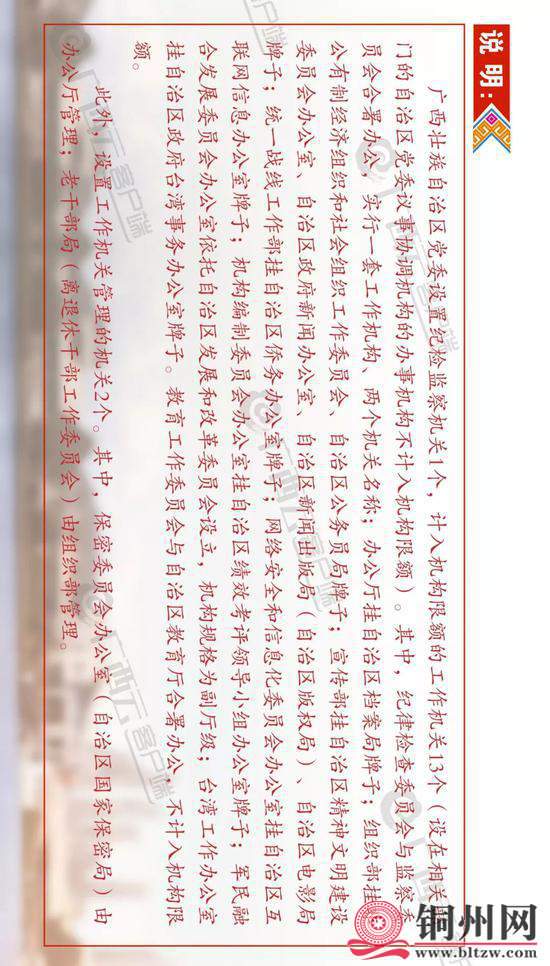 说明：
广西壮族自治区党委设置纪检监察机关1个，计入机构限额的工作机关13个（设在相关部
门的自治区党委议事协调机构的办事机构不计入机构限额）。其中，纪律检查委员会与监察委
员会合署办公，实行一套工作机构、两个机关名称；办公厅挂自治区档案局牌子；组织部挂
公有制经济组织和社会组织工作委员会、自治区公务员局牌子；宣传部挂自治区精神文明建设
委员会办公室、自治区政府新闻办公室、自治区新闻出版局（自治区版权局）、自治区电影局
牌子；统一战线工作部挂自治区侨务办公室牌子；网络安全和信息化委员会办公室挂自治区互
联网信息办公室牌子；机构编制委员会办公室挂自治区绩效考评领导小组办公室牌子；军民融
合发展委员会办公室依托自治区发展和改革委员会设立，机构规格为副厅级；台湾工作办公室
挂自治区政府台湾事务办公室牌子。教育工作委员会与自治区教育厅合署办公，不计入机构限
额。
此外，设置工作机关管理的机关2个。其中，保密委员会办公室（自治区国家保密局）由
办公厅管理；老干部局（离退休干部工作委员会）由组织部管理。
广西云客户端
广西云客户端
广西云客户端
广西云客户端
铜州网
www.bltzw.com